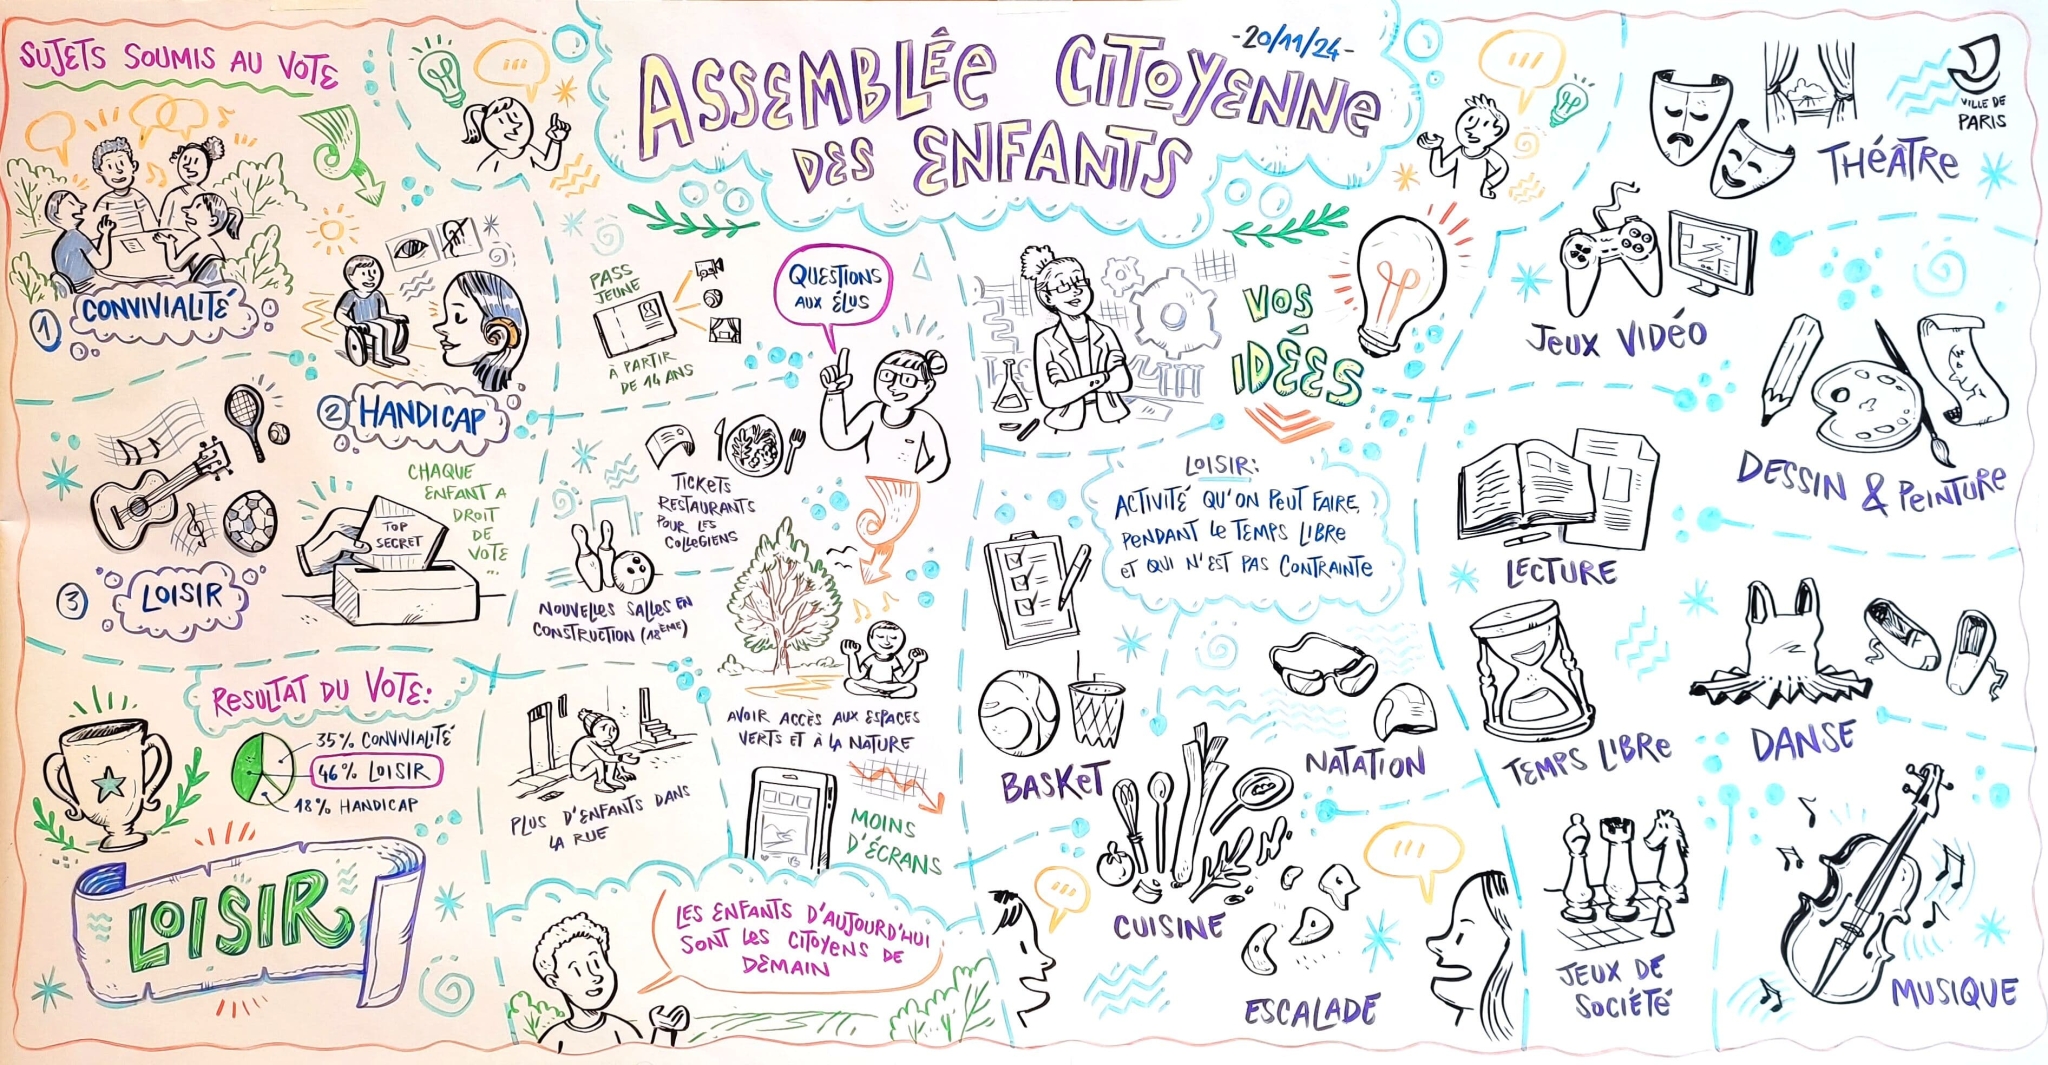 SUJETS SOUMIS AU VOTE
1 CONVIVIALITÉ
2 HANDICAP
3 LOISIR
CHAQUE
ENFANT A
DROIT
DE
VOTE
...
TOP
SECRET
RESULTAT DU VOTE:
35% CONVIVIALITÉ
46% LOISIR
18% HANDICAP
LOISIR
-20/11/24-
ASSEMBLÉE CITOYENNE
DES ENFANTS
PASS
JEUNE
À PARTIR
DE 14 ANS
QUESTIONS
AUX ÉLUS
TICKETS
RESTAURANTS
POUR LES
COLLEGIENS
NOUVELLES SALLES EN
CONSTRUCTION (18ÈME)
AVOIR ACCÈS AUX ESPACES
VERTS ET À LA NATURE
PLUS D'ENFANTS DANS
LA RUE
MOINS
D'ÉCRANS
LES ENFANTS D'AUJOURD'HUI
SONT LES CITOYENS DE
DEMAIN
VOS
IDÉES
LOISIR:
ACTIVITÉ QU'ON PEUT FAIRE,
PENDANT LE TEMPS LIBRE
ET QUI N'EST PAS CONTRAINTE
BASKET
NATATION
CUISINE
ESCALADE
VILLE DE
PARIS
THÉÂTRE
JEUX VIDÉO
DESSIN & PEINTURE
LECTURE
TEMPS LIBRE
DANSE
JEUX DE
SOCIÉTÉ
MUSIQUE